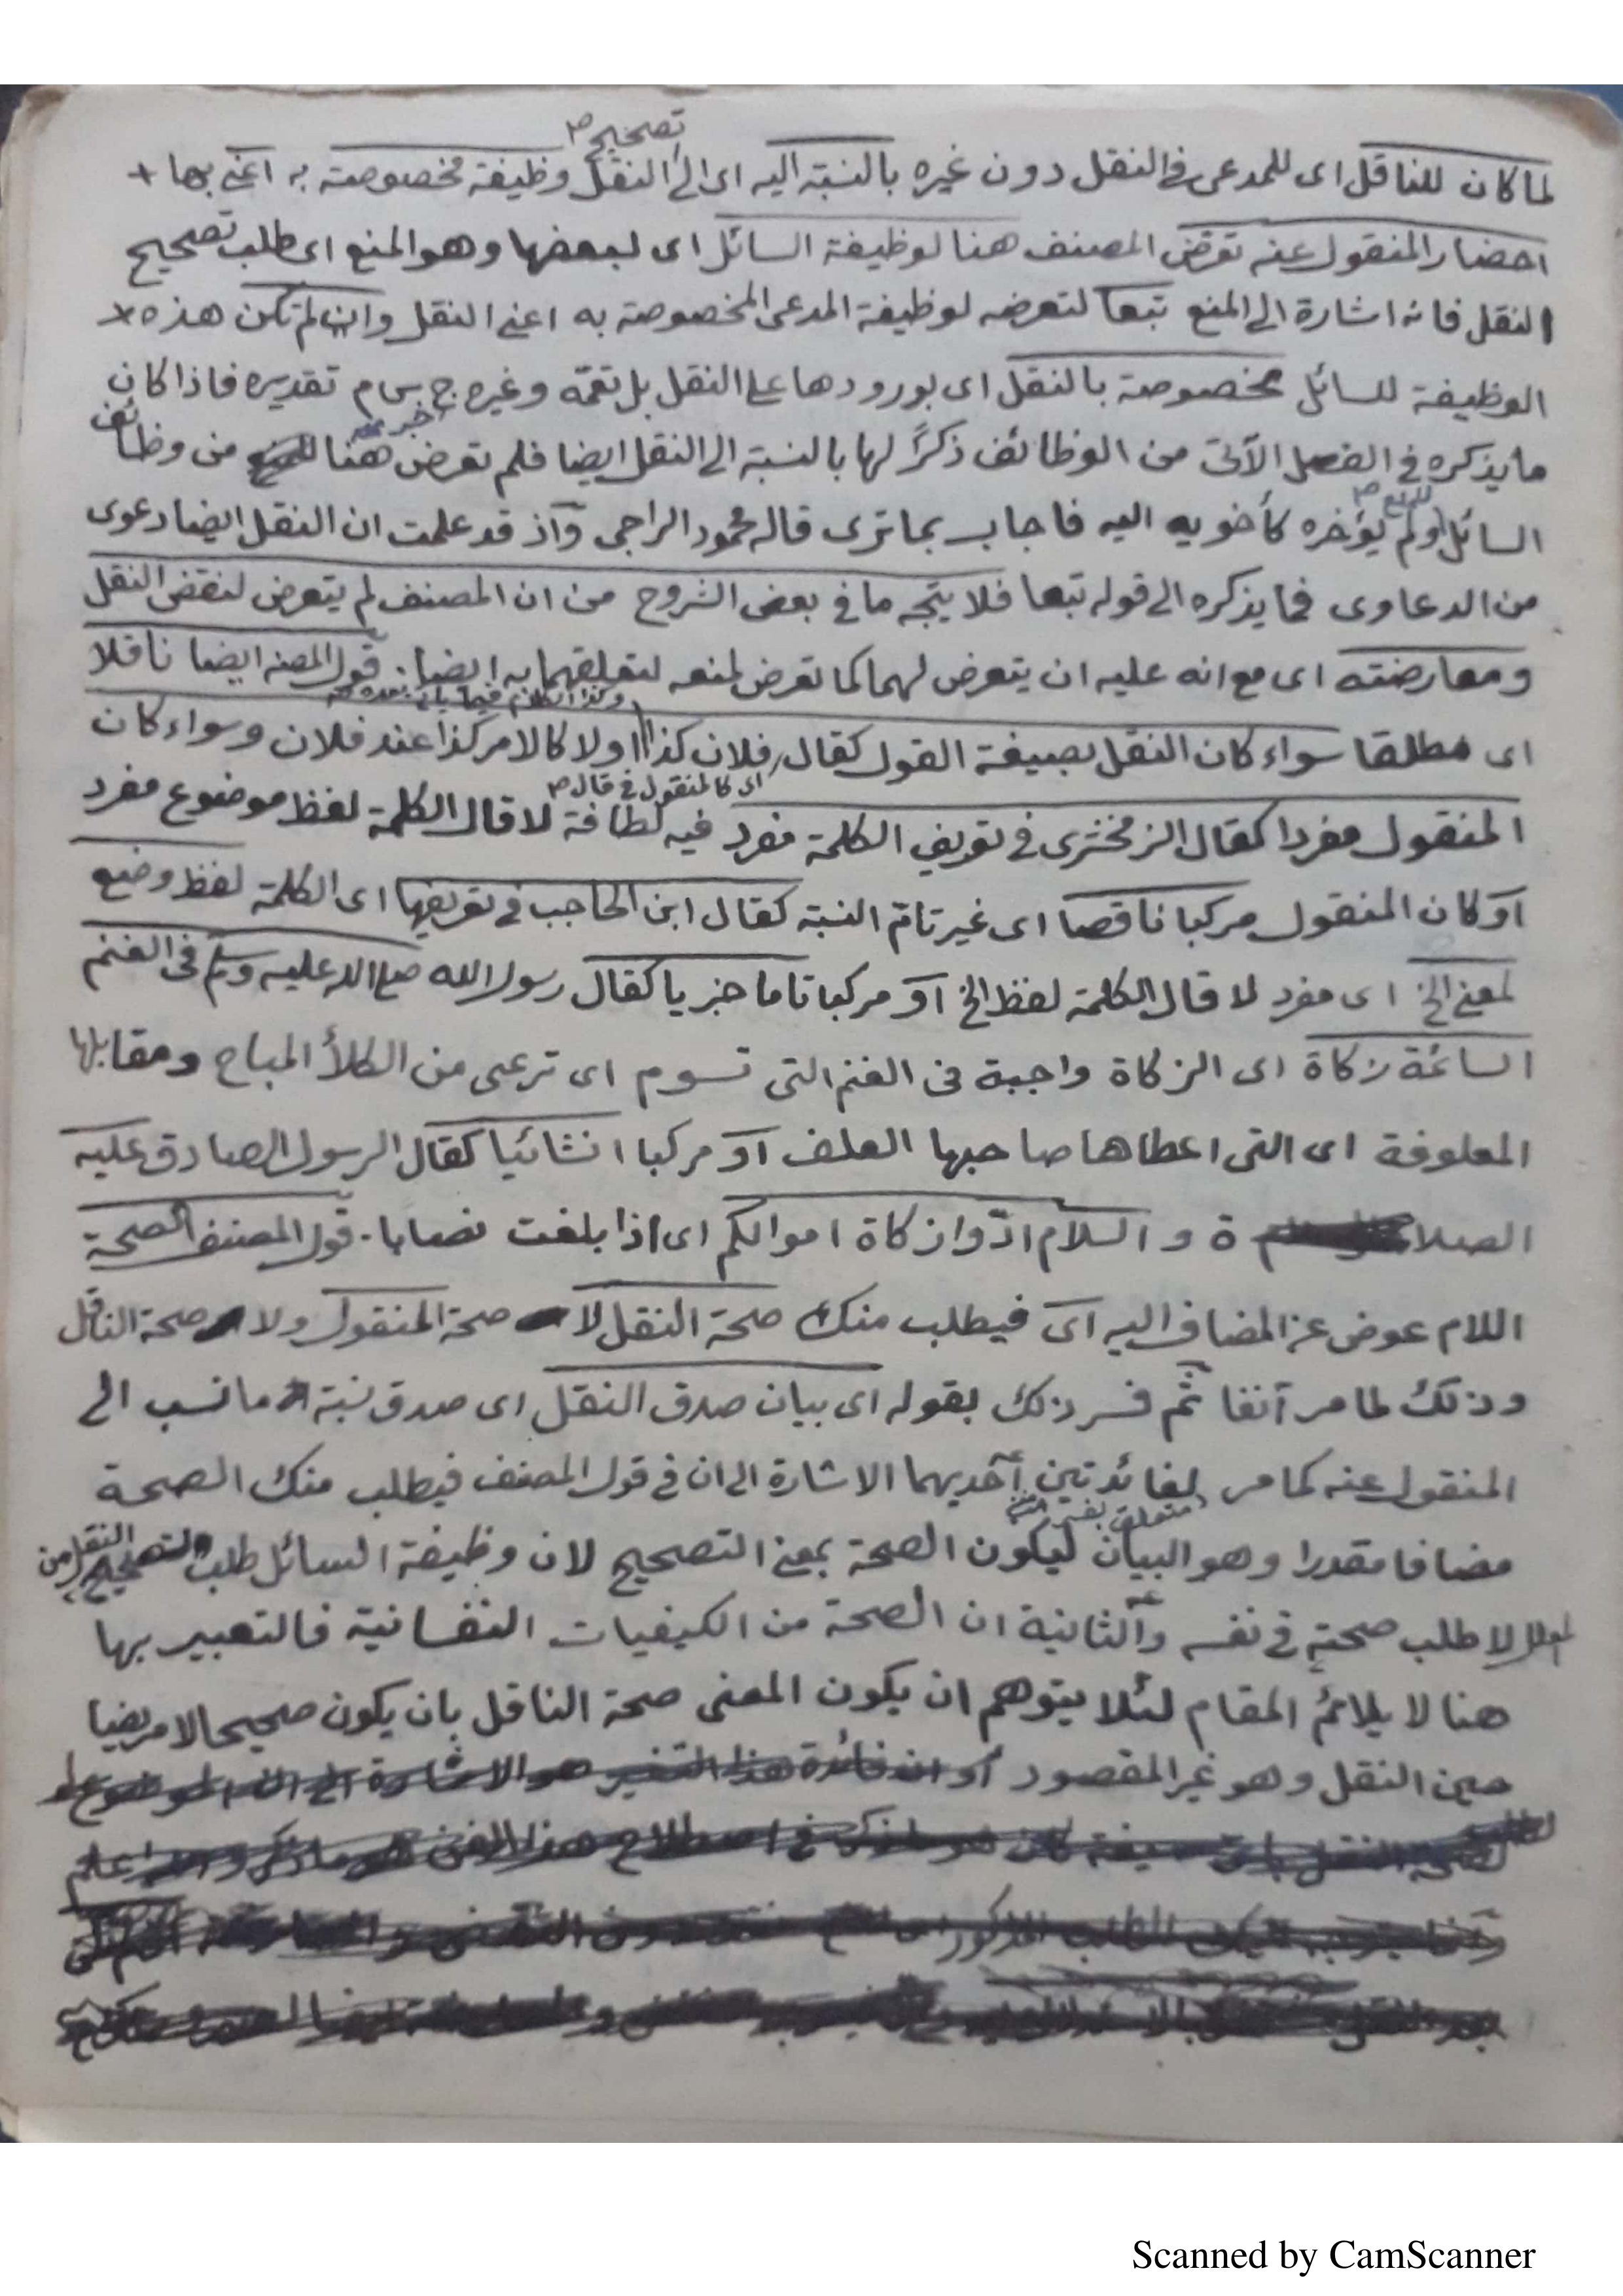 تصحيح صح
لما كان للناقل اى للمدعى فى النقل دون غيره بالنسبة اليه اى الى النقل وظيفة مخصوصة به اعنى بها +
احضار المنقول عنه تعرض المصنف هنا لوظيفة السائل اى لبعضها وهو المنع اى طلب تصحيح
النقل فانه اشارة الى المنع تبعا لتعرضه لوظيفة المدعى المخصوصة به اعنى النقل وان لم تكن هذه +
الوظيفة للسائل مخصوصة بالنقل اى بورودها على النقل بل تعمه وغيره تقديره فاذا كان
ما يذكره فى الفصل الآتى من الوظائف ذكرًا لها بالنسبة الى النقل ايضا فلم تعرض هنا من وظائف
السائل ولم يؤخره كأخويه اليه فاجاب بما ترى قاله محمود الراجى وآذ قد علمت ان النقل ايضا دعوى
من الدعاوى فما يذكره الى قوله تبعا فلا يتجه ما فى بعض الشروح من ان المصنف لم يتعرض لنقض النقل
ومعارضته اى مع انه عليه ان يتعرض لهما كما تعرض لمنعه لتعلقهما به ايضا. قول المصنف ايضا ناقلا
اى مطلقا سواء كان النقل بصيغة القول كقال فلان كذا اولا كالامر كذا عند فلان وسواء كان
اى كالمنقول فى قال صح
المنقول مفردا كقال الزمخشرى فى تعريف الكلمة مفرد فيه لطافة لا قال الكلمة لفظ موضوع مفرد
آو كان المنقول مركبا ناقصا اى غير تام النسبة كقال ابن الحاجب فى تعريفها اى الكلمة لفظ وضع
لمعنى الخ اى مفرد لا قال الكلمة لفظ الخ آو مركبا تاما خبريا كقال رسول الله صلى الله عليه وسلم فى الغنم
السائمة زكاة اى الزكاة واجبة فى الغنم التى تسوم اى ترعى من الكلأ المباح ومقابلها
المعلوفة اى التى اعطاها صاحبها العلف آو مركبا انشائيا كقال الرسول الصادق عليه
الصلاة والسلام ادّوا زكاة اموالكم اى اذا بلغت نصابا. قول المصنف الصحة
اللام عوض عن المضاف اليه اى فيطلب منك صحة النقل لا صحة المنقول ولا صحة الناقل
وذلك لما مر آنفا ثم فسر ذلك بقوله اى بيان صدق النقل اى صدق نسبة ما نسب الى
المنقول عنه كما مر لفائدتين آحديهما الاشارة الى ان فى قول المصنف فيطلب منك الصحة
مضافا مقدرا وهو البيان ليكون الصحة بمعنى التصحيح لان وظيفة السائل طلب تصحيح النقل من
المعلل لا طلب صحته فى نفسه وآلثانية ان الصحة من الكيفيات النفسانية فالتعبير بها
هنا لا يلائم المقام لئلا يتوهم ان يكون المعنى صحة الناقل بان يكون صحيحا لا مريضا
حين النقل وهو غير المقصود
Scanned by CamScanner